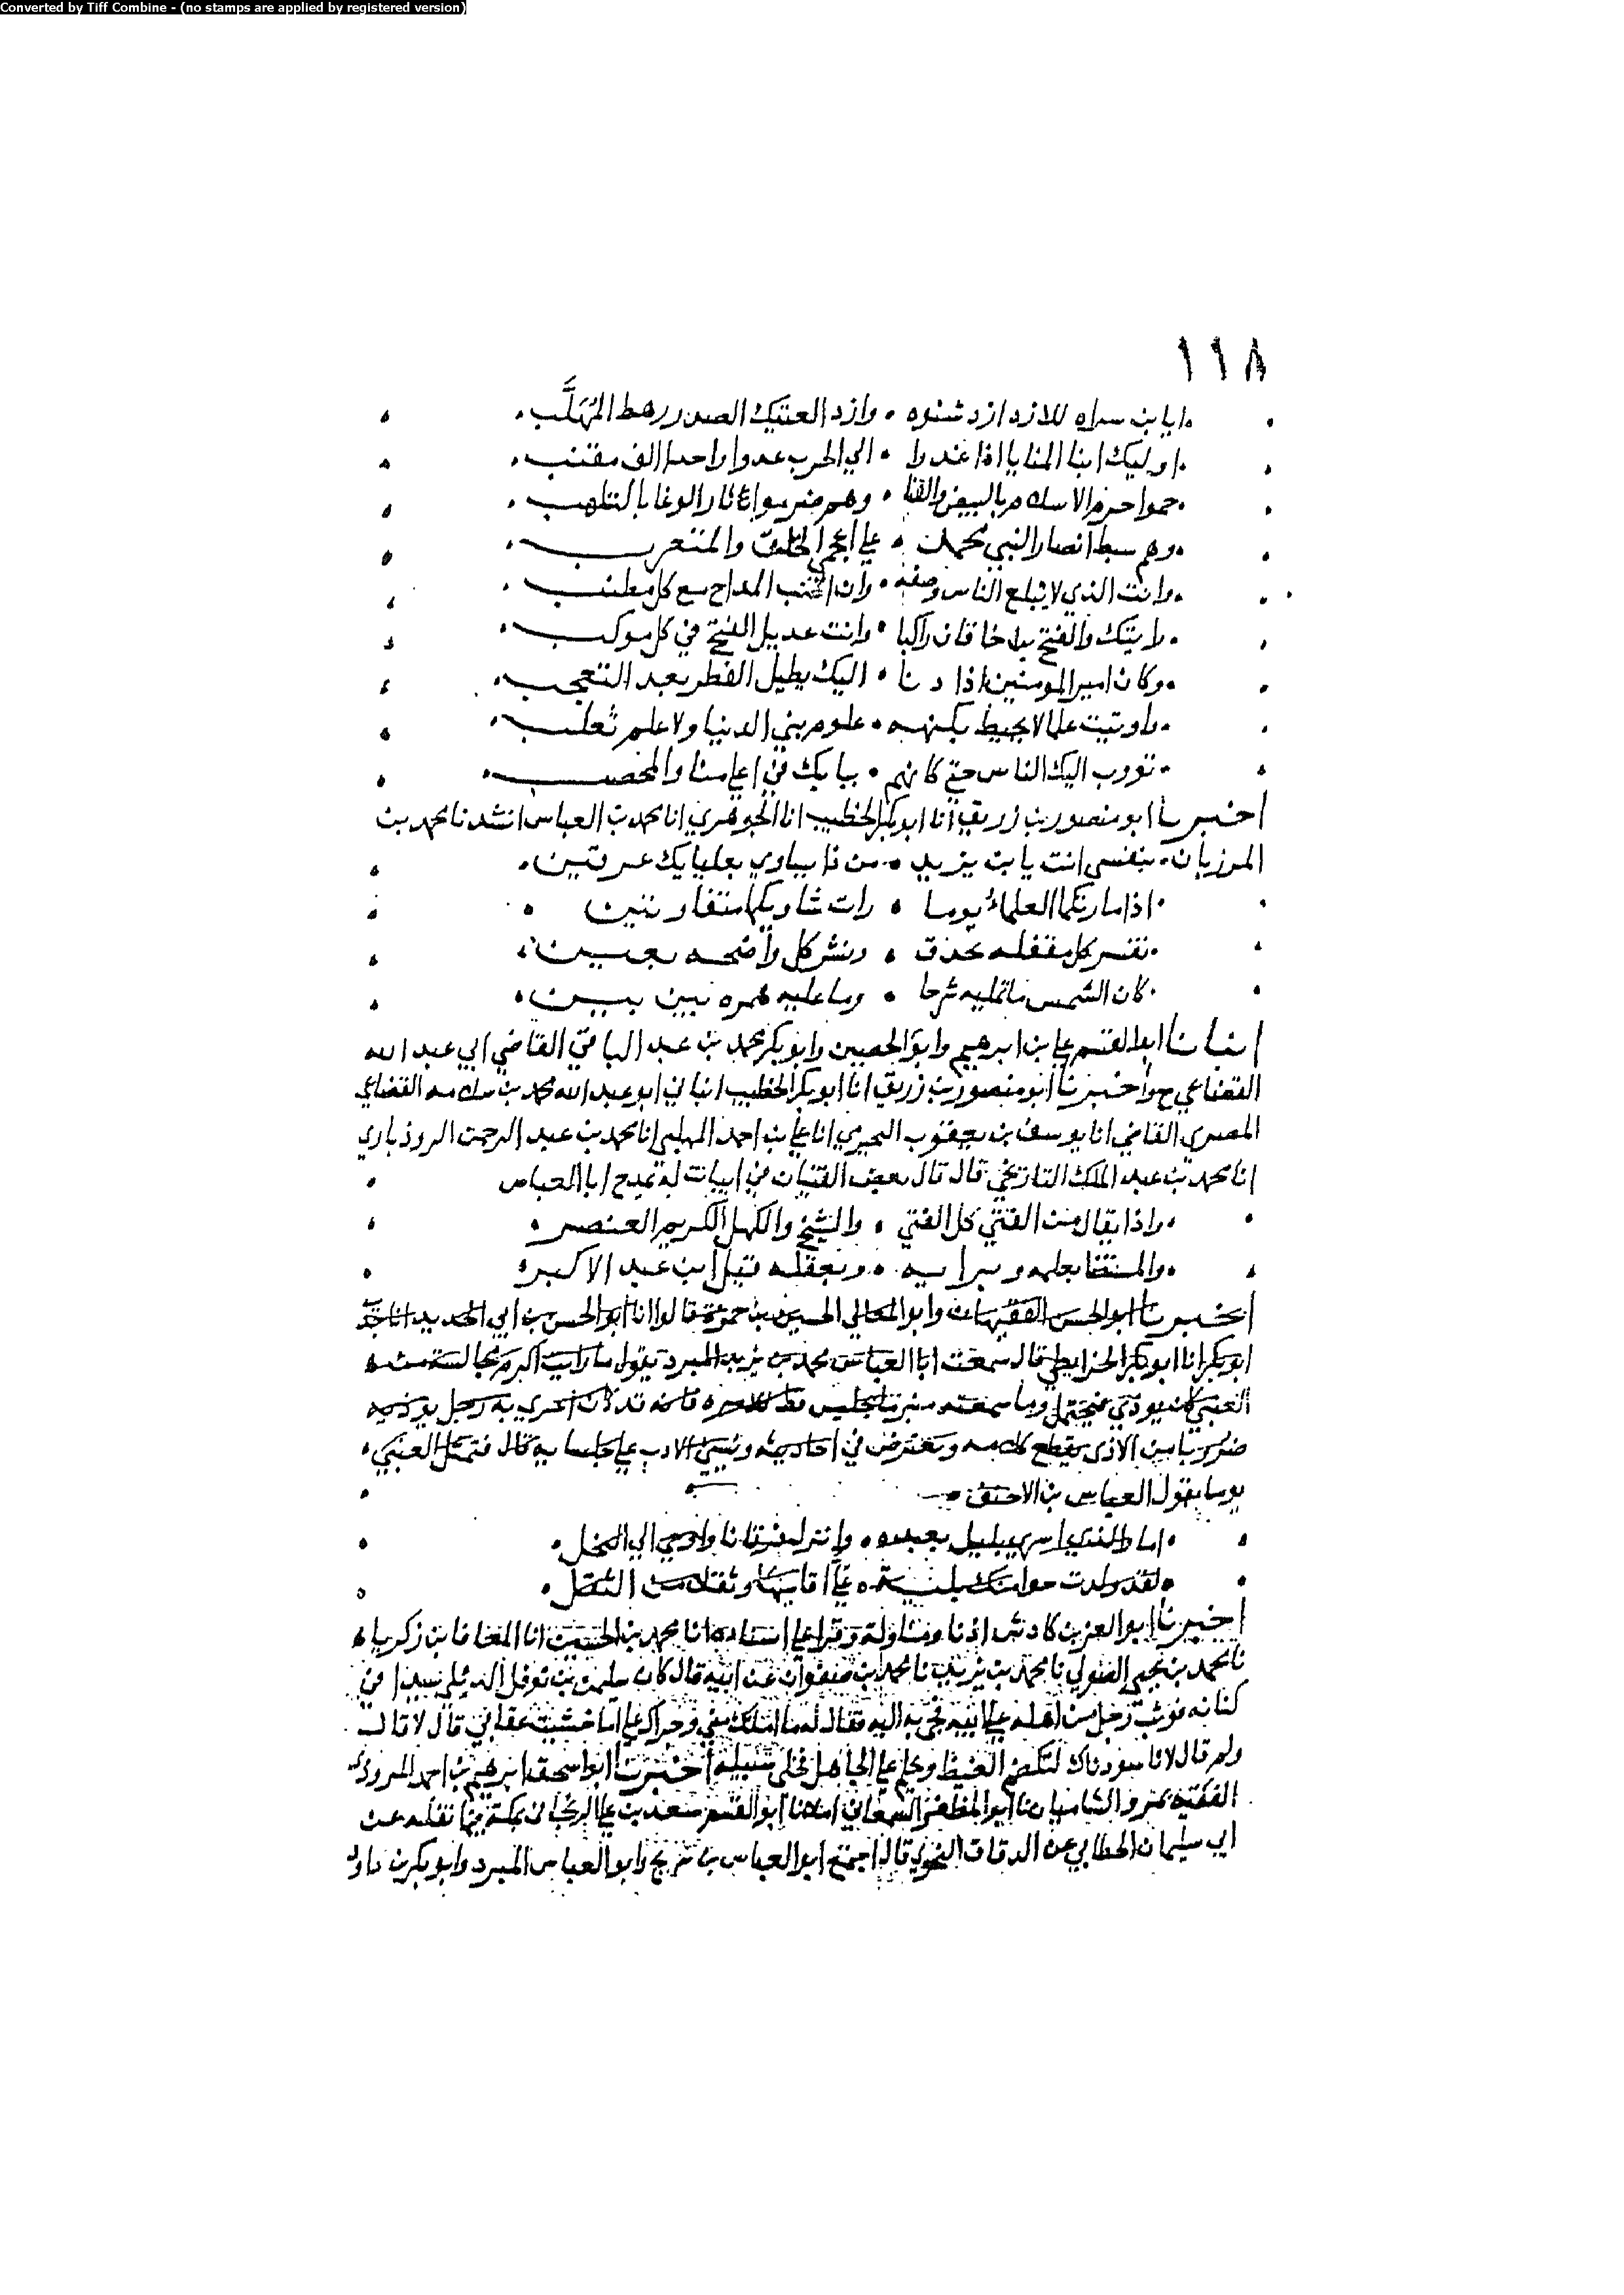 Converted by Tiff Combine - (no stamps are applied by registered version)
١١٨
ايا بن سراه للازد ازد شنوه وازد العتيك الصدر رهط المُهَلَّب
اوليك ابنا المنايا اذا غدوا الي الحرب عدوا واحدا الف مقنب
حموا حرم الاسلام بالبيض والقنا وهم ضرموا نار الوغا بالتلهب
وهم سبط انصار النبي محمد علي اعجمي الخلق والمتعرب
وانت الذي لا يبلغ الناس وصفه وان اطنب المداح مع كل مطنب
رايتك والفتح بن خاقان راكبا وانت عديل الفتح في كل موكب
وكان امير المومنين اذا دنا اليك يطيل الفطر بعد التعجب
واوتيت علما لا يحيط بكنهه علوم بني الدنيا ولا علم ثعلب
تووب اليك الناس حتي كانهم ببابك في اعلي منا والمحصب
اخبرنا ابو منصور بن زريق انا ابو بكر الخطيب انا الجوهري انا محمد بن العباس انشدنا محمد بن
المرزبان بنفسي انت يا بن يزيد من ذا يساوي بعليا بك عرقين
اذا ما زنكما العلماء يوما رات شاويكما متفاوتين
تفسر كل مقفله بحذق وتستر كل واضحه بعين
كان الشمس ما تمليه شرحا وما عليه همزه بين بين
انبانا ابو القسم علي بن ابرهيم وابو الحصين وابو بكر محمد بن عبد الباقي القاضي ابي عبد الله
القضاعي ح واخبرنا ابو منصور بن زريق انا ابو بكر الخطيب انباني ابو عبد الله محمد بن سلامه القضاعي
المصري القاضي انا يوسف بن يعقوب النجيرمي انا علي بن احمد المهلبي انا محمد بن عبد الرحمن الروذباري
انا محمد بن عبد الملك التاريخي قال قال بعض الفتيان في ابيات له تمدح ابا العباس
واذا يقال من الفتي كل الفتي والشيخ والكهل الكريم العنصر
والمستضا بعلمه وبرايه وبعقله قيل ابن عبد الاكبر
اخبرنا ابو الحسن الفقيهان وابو المعالي الحسين بن حمزة قالوا انا ابو الحسن بن ابي الحديد انا جدي
ابو بكر انا ابو بكر الخرايطي قال سمعت ابا العباس محمد بن يزيد المبرد يقول ما رايت اكرم مجالسة من
العتبي كان يوذي فيحتمل وما سمعته متبرما بجليس قط فانه قد كان اغري به رجل يوذيه
ضروبا من الاذي يقطع كلامه ويعترض في احاديثه ويسيئ الادب علي جلسايه قال فتمثل العتبي
يوما بقول العباس بن الاحنف
اما والذي اسري بليل بعبده وانزل فرقانا واوحي الي النحل
لقد ولدت حوا منك بلية علي اقاسيها وثقلا من الثقل
اخبرنا ابو العز بن كادش اذنا ومناولة وقرا علي اسناده انا محمد بن الحسين انا المعافا بن زكريا
نا محمد بن يحيي الصولي نا محمد بن يزيد نا محمد بن صفوان عن ابيه قال كان سلمن بن نوفل الديلي سيدا في
كنانه فوثب رجل من اهله علي ابنه فجي به اليه فقال له ما امنك مني وجراك علي اما خشيت عقابي قال لا قال
ولم قال لانا سودناك لتكظم الغيظ وتحلم علي الجاهل فخلي سبيله اخبرنا ابو اسحق ابرهيم بن احمد المروذي
الفقيه بمرو الشاميان نا ابو المظفر السمعاني املانا ابو القسم سعد بن علي الزنجاني بمكة فيما نقله عن
ابي سليمان الخطابي عن الدقاق النحوي قال اجتمع ابو العباس بن سريج وابو العباس المبرد وابو بكر بن داود